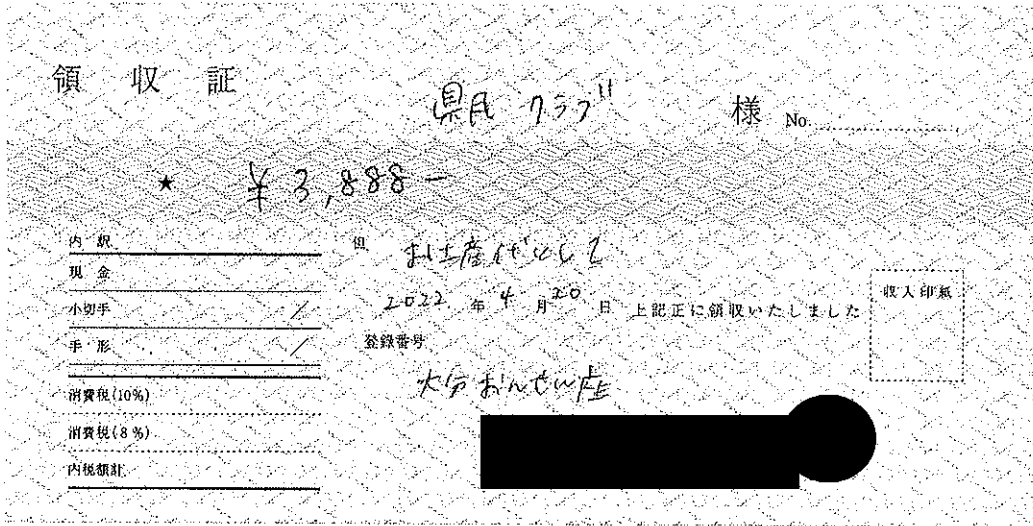 領収証
県民クラブ 様 No.
★ ¥3,888－
内訳
現金
小切手
手形
消費税(10%)
消費税(8%)
内税額計
但 お土産代として
2022年4月20日 上記正に領収いたしました
登録番号
大分おんせん産
収入印紙